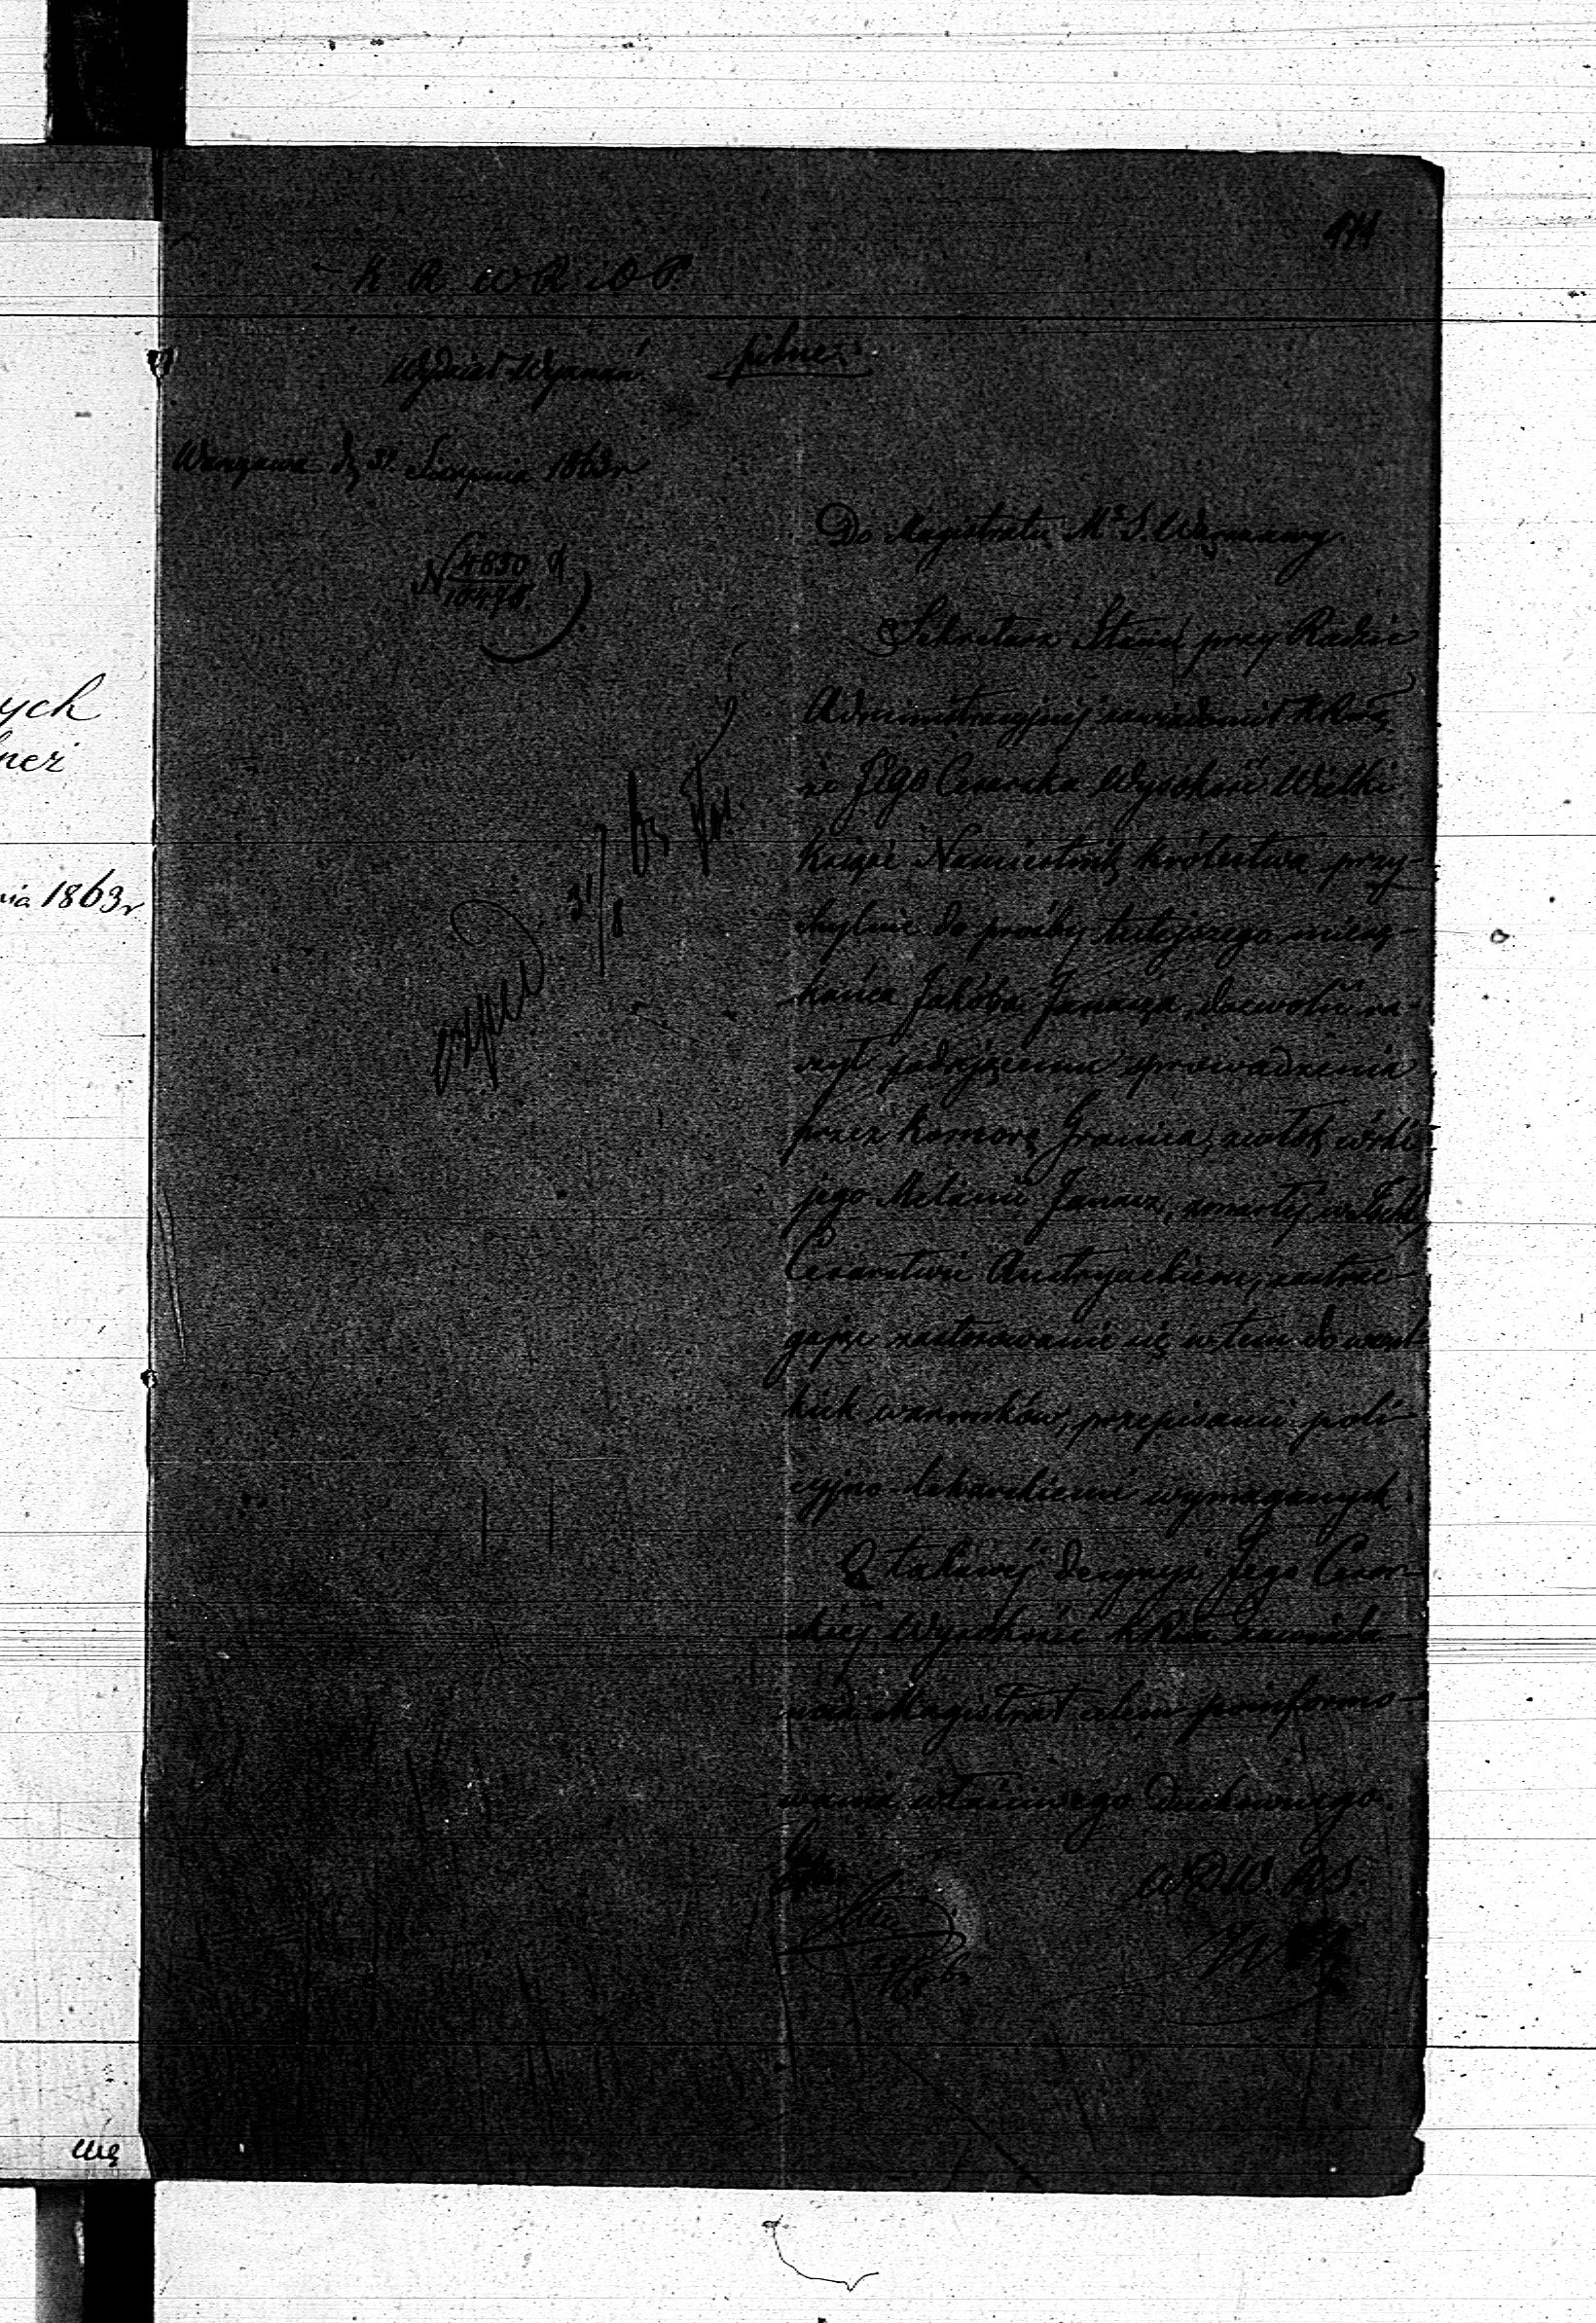 474
K R W R i O P.
Wydział Wyznań.
pilne.
Warszawa d. 31 Sierpnia 1863 r
N 4830
Do Magistratu M. S. Warszawy.
Sekretarz Stanu przy Radzie
Administracyjnej zawiadomił KRząd.
że Jego Cesarska Wysokość Wielki
Książe Namiestnik Królestwa przy-
chylnie do prośby tutejszego miesz-
kańca Jakóba Janasza, dozwolić ra-
czył podającemu sprowadzenia
przez komorę Granica, zwłok córki
jego Melanii Janasz, zmarłej w Ischl,
Cesarstwie Austryackiem, zastrze-
gając zastosowanie się w tem do wszel-
kich warunków, przepisami poli-
cyjno-lekarskiemi wymaganych.
O takowej decyzyi Jego Cesar-
skiej Wysokości KRząd. zawiada-
mia Magistrat celem poinformo-
wania właściwego Duchownego.
exped. 31/8 63
W D W. RS
ych
nież
nia 1863 r